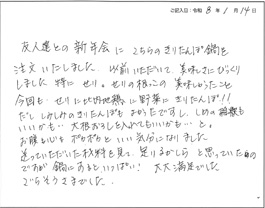 ご記入日:令和 8年 1月 14日
友人達との新年会に こちらのきりたんぽ鍋を
注文いたしました。以前いただいて、美味しさにびっくり
しました 特に せり。せりの根っこの美味しかったこと
今回も セリに比内地鶏に野菜にきりたんぽ!!
だし しみしみのきりたんぽも よかったですし、しめの雑炊も
いいかも… 大根おろしを入れてもいいかも…と。
お腹もいい ポカポカと いい気分になりました
送っていただいた材料を見て、足りるかしら と思っていた
ですが 鍋にすると いっぱい! 大大満足でした
ごちそうさまでした。